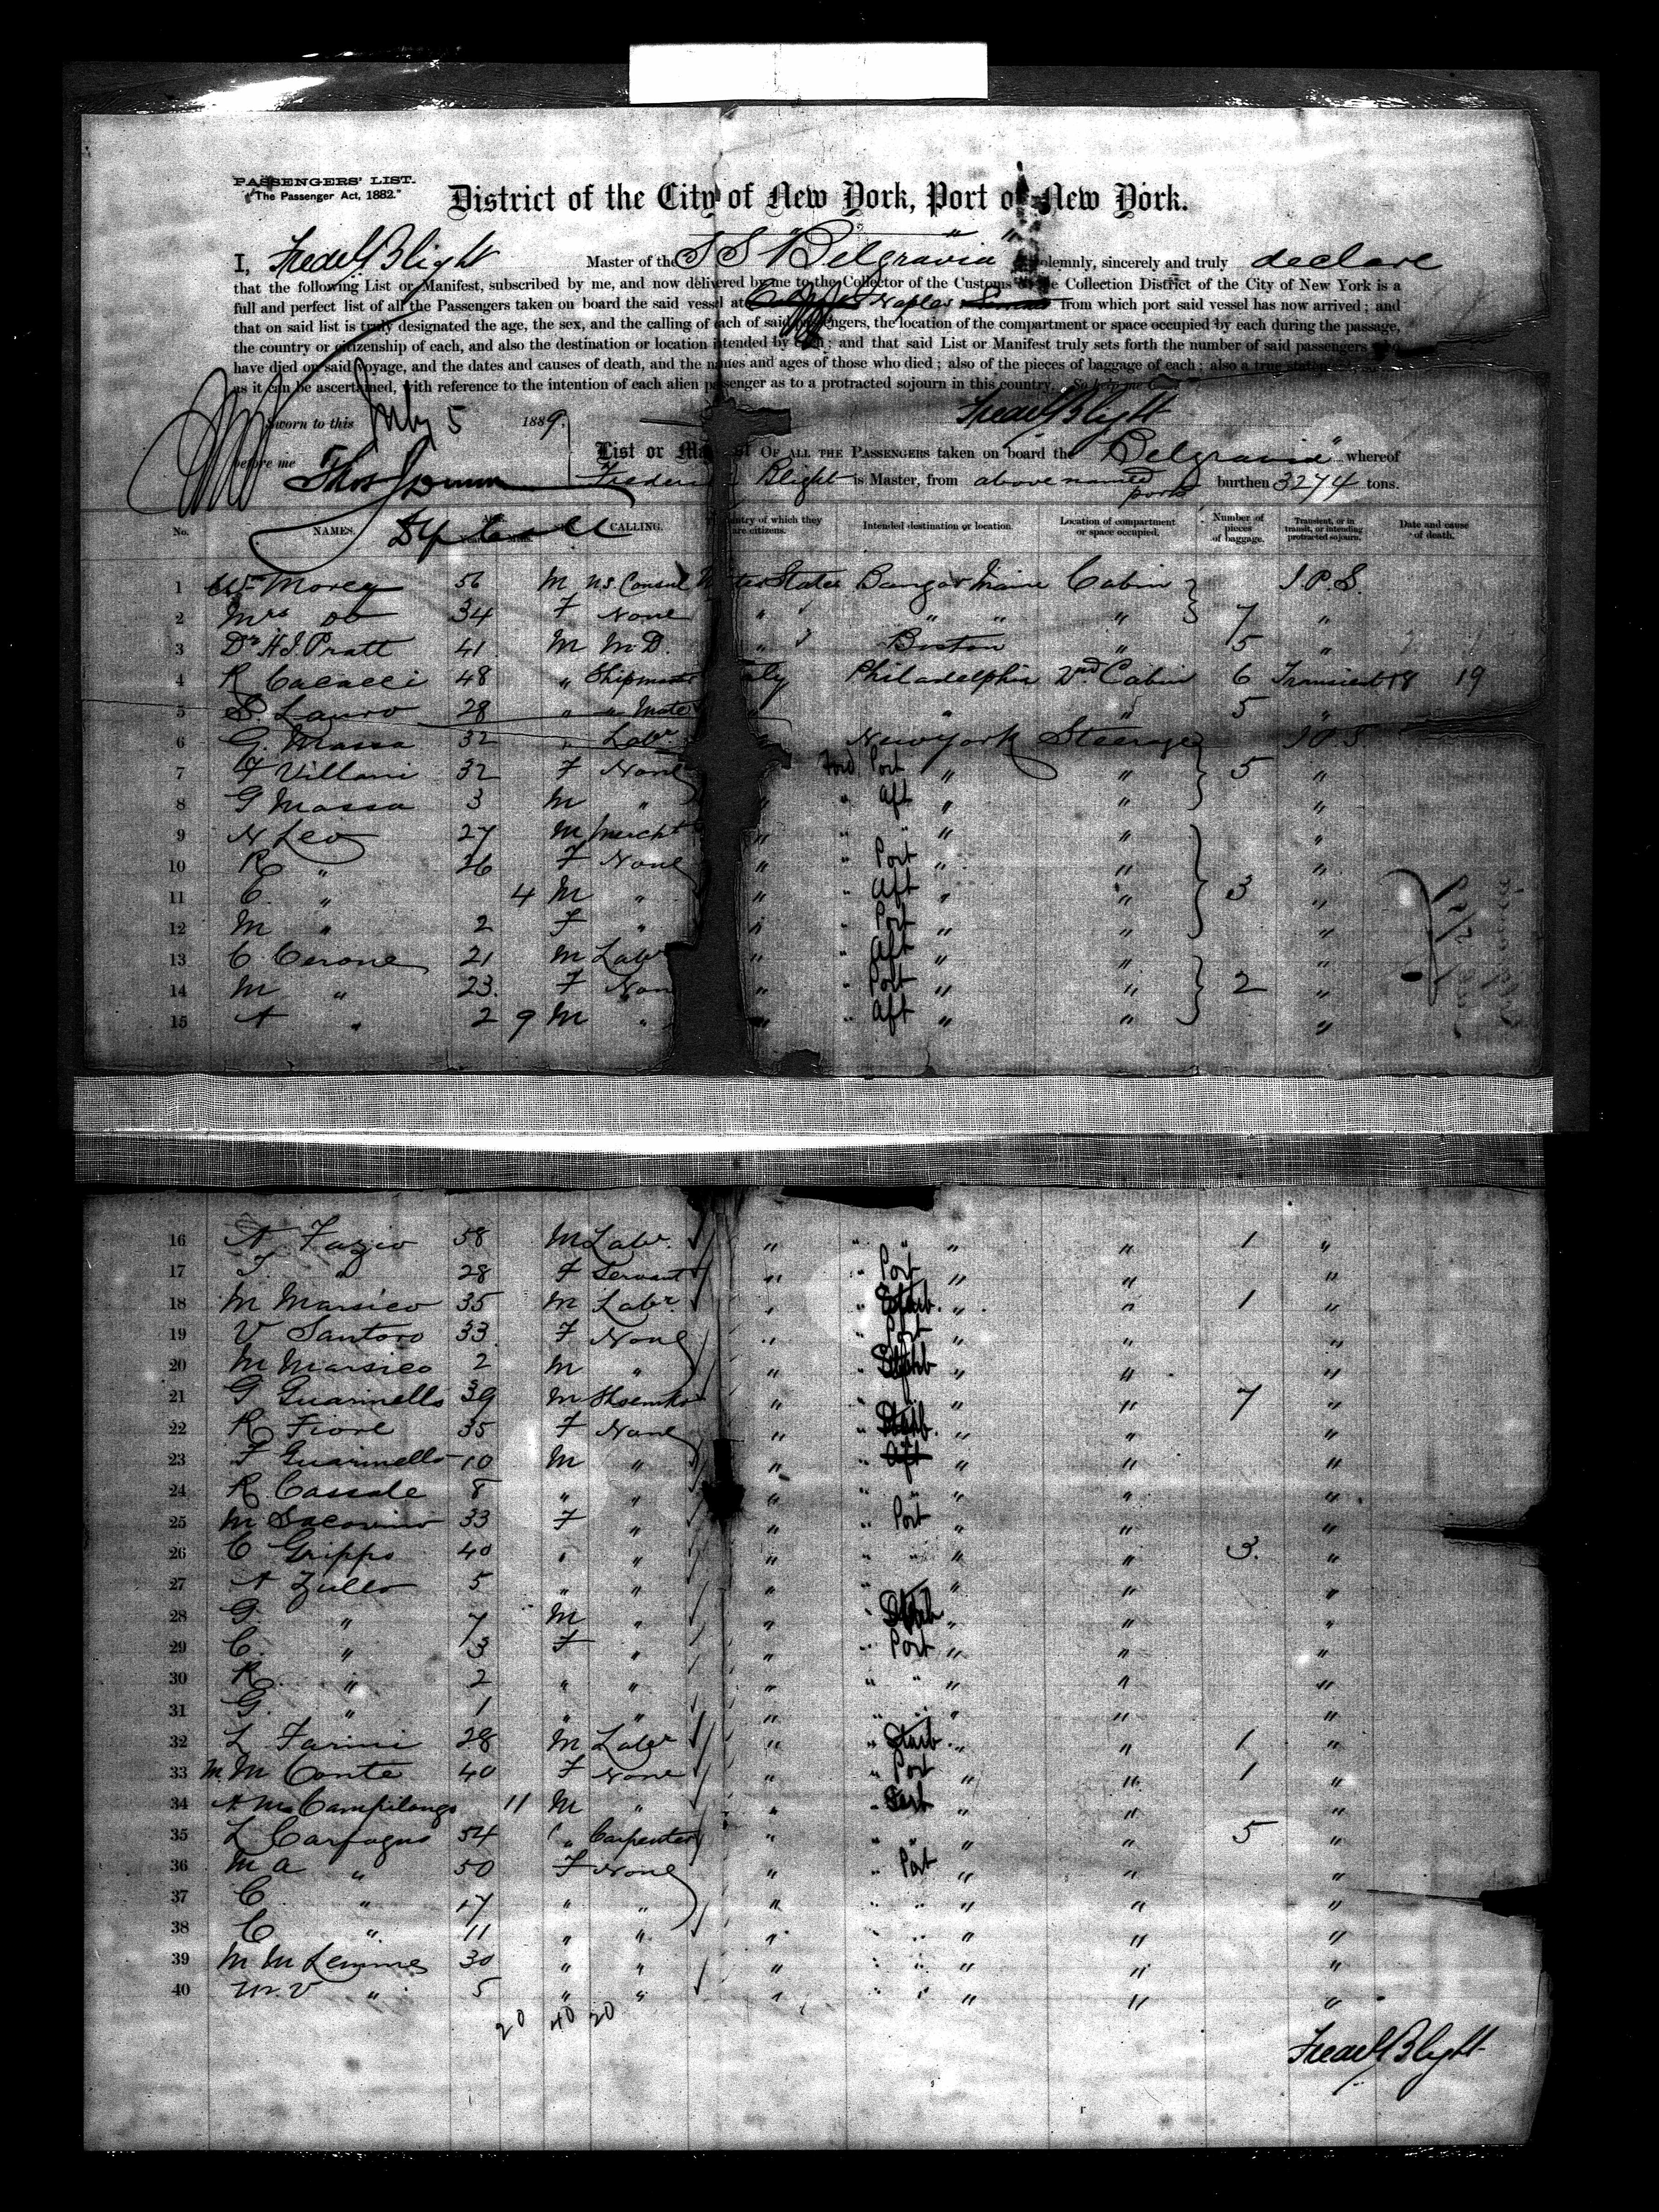 PASSENGERS' LIST.
"The Passenger Act, 1882."
District of the City of New York, Port of New York.
I, Fredk Blight Master of the S S "Belgravia" solemnly, sincerely and truly declare
that the following List or Manifest, subscribed by me, and now delivered by me to the Collector of the Customs of the Collection District of the City of New York is a
full and perfect list of all the Passengers taken on board the said vessel at Naples from which port said vessel has now arrived; and
that on said list is truly designated the age, the sex, and the calling of each of said passengers, the location of the compartment or space occupied by each during the passage,
the country or citizenship of each, and also the destination or location intended by each; and that said List or Manifest truly sets forth the number of said passengers who
have died on said voyage, and the dates and causes of death, and the names and ages of those who died; also of the pieces of baggage of each; also a true statement
as it can be ascertained, with reference to the intention of each alien passenger as to a protracted sojourn in this country. So help me God
Fredk Blight
Sworn to this July 5 1889.
before me Thos J Dunn
List or Manifest OF ALL THE PASSENGERS taken on board the "Belgravia" whereof
Frederick Blight is Master, from above named port burthen 3274 tons.
No. NAMES. AGE. CALLING. Country of which they are citizens. Intended destination or location. Location of compartment or space occupied. Number of pieces of baggage. Transient, or in transit, or intending protracted sojourn. Date and cause of death.
1 Wm Morey 56 M U.S. Consul United States Bangor Maine Cabin I.P.S.
2 Mrs Do 34 F None " " " " 7 "
3 Dr H.I. Pratt 41 M M.D. " Boston " 5 "
4 R Cacacci 48 " Shipmaster Italy Philadelphia 2nd Cabin 6 Transient 18 19
5 S. Lauro 28 " " Mate " " " 5 "
6 G. Massa 32 " Labr " New York Steerage I.P.S.
7 F Villani 32 F None " Ford Port " " 5 "
8 G Massa 3 M " " " Aft " " "
9 N Leo 27 M Mercht " " " " " "
10 R " 26 F None " " Port " " "
11 C. " 4 M " " " Aft " " 3 "
12 M " 2 F " " " Port " " "
13 C. Cerone 21 M Labr " " Aft " " "
14 M " 23. F None " " Port " " 2 "
15 A " 2 9 M " " " Aft " " "
16 A Fazio 58 M Labr. " " " " " 1 "
17 F. " 28 F Servant " " Port " " "
18 M Marsico 35 M Labr. " " Starb. " " 1 "
19 V Santoro 33. F None " " Port " " "
20 M Marsico 2 M " " " Starb " " "
21 G Guarinello 39 M Shoemkr " " " " " 7 "
22 R Fiore 35 F None " " " " "
23 F Guarinello 10 M " " " Aft " " "
24 R. Cassale 8 " " " " " " " "
25 M Sacovino 33 F " " " Port " " "
26 C Grippo 40 " " " " " " " 3. "
27 A Zullo 5 " " " " " " " "
28 G. " 7 M " " " " " "
29 C. " 3 F " " " Port " " "
30 R. " 2 " " " " " " "
31 G. " 1 " " " " " " " "
32 L Farini 28 M Labr " " Starb " " 1 "
33 M. M Conte 40 F None " " Port " " 1 "
34 A Ma Campilongo 11 M " " " " " "
35 L Carfagno 54 " Carpenter " " " " " 5 "
36 M a " 50 F None " " Port " " "
37 C " 17 " " " " " " " "
38 C " 11 " " " " " " " "
39 M M Lemme 30 " " " " " " " "
40 M. V " 5 " " " " " " " "
20 40 20
Fredk Blight